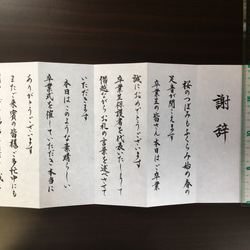 謝辞
桜のつぼみもふくらみ始め春の
足音が聞こえます
卒業生の皆さん本日はご卒業
誠におめでとうございます
卒業生保護者を代表いたしまして
僭越ながらお礼の言葉を述べさせて
いただきます
本日はこのような素晴らしい
卒業式を催していただき本当に
ありがとうございます
またご来賓の皆様ご多忙中にも